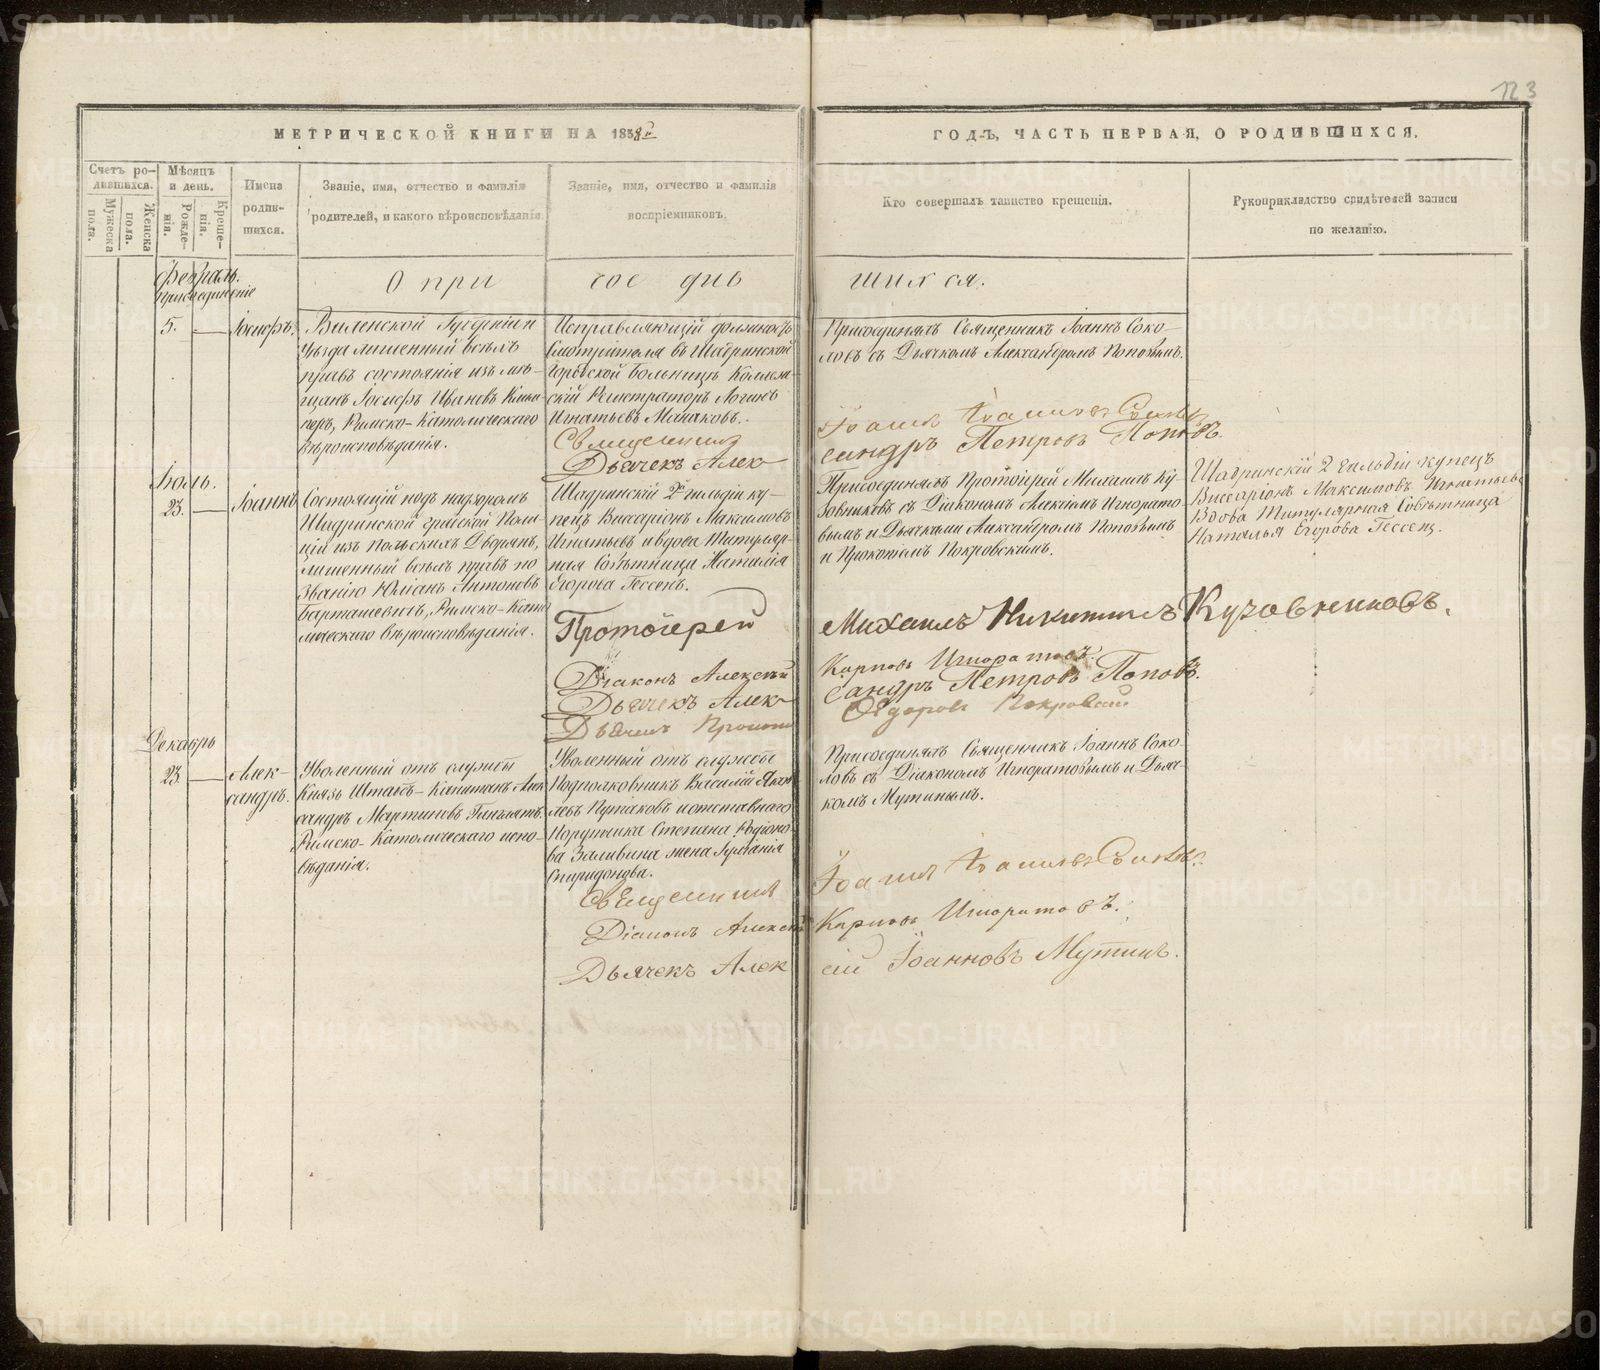 123
МЕТРИЧЕСКОЙ КНИГИ НА 1858й
ГОДЪ, ЧАСТЬ ПЕРВАЯ, О РОДИВШИХСЯ.
Счетъ ро-
дившихся.
Мужеска
пола.
Женска
пола.
Мѣсяцъ
и день.
Рожде-
нія.
Креще-
нія.
Имена
родив-
шихся.
Званіе, имя, отчество и фамилія
родителей, и какого вѣроисповѣданія.
Званіе, имя, отчество и фамилія
воспріемниковъ.
Кто совершалъ таинство крещенія.
Рукоприкладство свидѣтелей записи
по желанію.
Февраль.
присоединеніе
О при сое динь шихся.
5.
Іосифъ.
Виленской Губерніи
Уѣзда лишенный всѣхъ
правъ состоянія изъ мѣ-
щанъ Іосифъ Ивановъ
Римско-Католическаго
вѣроисповѣданія.
Исправляющій должность
Смотрителя въ Шадринской
Городской больницѣ Коллеж-
скій Регистраторъ Логинъ
Игнатьевъ Манаковъ.
Священникъ
Дьячекъ Алек-
Присоединялъ Священникъ Іоаннъ Соко-
ловъ съ Дьячкомъ Александромъ Поповымъ.
Іоаннъ Іоанновъ
сандръ Петровъ Поповъ.
Іюль.
23.
Іоаннъ
Состоящій подъ надзоромъ
Шадринской градской Поли-
ціи изъ Польскихъ Дворянъ,
лишенный всѣхъ правъ по
Званію Юліанъ Антоновъ
Барташевичъ, Римско-Като
лическаго вѣроисповѣданія.
Шадринскій 2й гильдіи ку-
пецъ Виссаріонъ Максимовъ
Игнатьевъ и вдова Титуляр-
ная Совѣтница Наталія
Егорова Гессенъ.
Протоіерей
Діаконъ Алексѣй
Дьячекъ Алек-
Дьячекъ
Присоединялъ Протоіерей Михаилъ Ку-
зовниковъ съ Діакономъ Алексіемъ Игнорато
вымъ и Дьячками Александромъ Поповымъ
и Прокопіемъ Покровскимъ.
Михаилъ Никитинъ Кузовниковъ.
Карповъ Игноратовъ.
сандръ Петровъ Поповъ.
Ѳедоровъ Покровскій
Шадринскій 2 гильдіи купецъ
Виссаріонъ Максимовъ Игнатьевъ
Вдова Титулярная Совѣтница
Наталья Егорова Гессенъ.
Декабрь
23.
Алек-
сандръ.
Уволенный отъ службы
Князь Штабъ-Капитанъ Алек
сандръ Мартиновъ
Римско-Католическаго испо-
вѣданія.
Уволенный отъ службы
Подполковникъ Василій Яков
левъ и отставнаго
Порутчика Степана Родіоно-
ва жена
Спиридонова.
Священникъ
Діаконъ Алексѣй
Дьячекъ Алек
Присоединялъ Священникъ Іоаннъ Соко-
ловъ съ Діакономъ Игноратовымъ и Дьяч-
комъ Мутинымъ.
Іоаннъ Іоанновъ
Карповъ Игноратовъ.
сій Іоанновъ Мутинъ.
METRIKI.GASO-URAL.RU